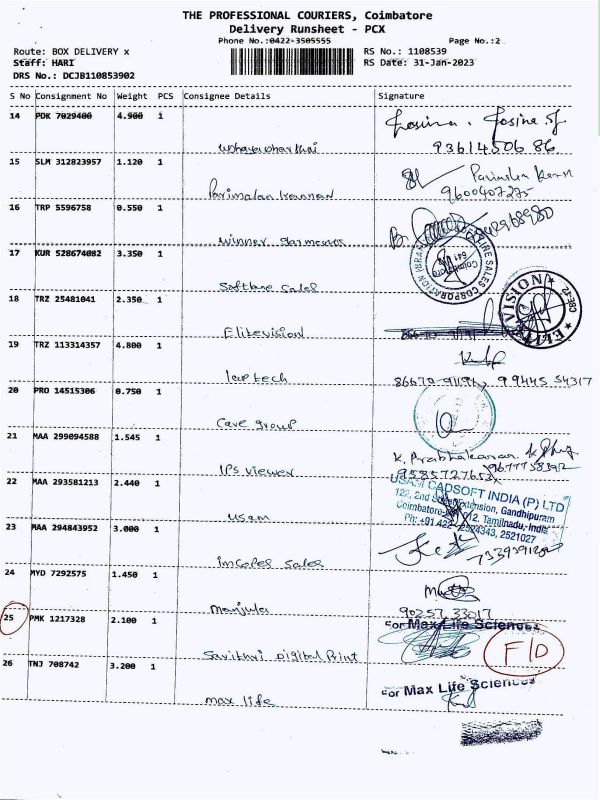 THE PROFESSIONAL COURIERS, Coimbatore
Delivery Runsheet - PCX
Phone No.:0422-3505555 Page No.:2
Route: BOX DELIVERY x RS No.: 1108539
Staff: HARI RS Date: 31-Jan-2023
DRS No.: DCJB110853902
S No Consignment No Weight PCS Consignee Details Signature
14 PDK 7029400 4.900 1
93614506 86
15 SLM 312823957 1.120 1
Parimalan Kannan 9600407275
16 TRP 5596758 0.550 1
winner garments
17 KUR 528674082 3.350 1
Software Sales
18 TRZ 25481041 2.350 1
Elitevision ELITE VISION CBE-22
19 TRZ 113314357 4.800 1
86670-91191, 99445 54317
20 PRO 14515306 0.750 1
Care group
21 MAA 299094588 1.545 1
K. Prabhakaran
IPs viewer 9585727653 9677758392
22 MAA 293581213 2.440 1
USAM CADSOFT INDIA (P) LTD
122, 2nd Extension, Gandhipuram
Coimbatore- 012. Tamilnadu, India
Ph: +91 422 2524343, 2521027
usam
23 MAA 294843952 3.000 1
Sales
24 MYD 7292575 1.450 1
Manjula 90257 33017
25 PMK 1217328 2.100 1
For Max Life Sciences
Savithri Digital Print F/D
26 TNJ 708742 3.200 1
For Max Life Sciences
max life